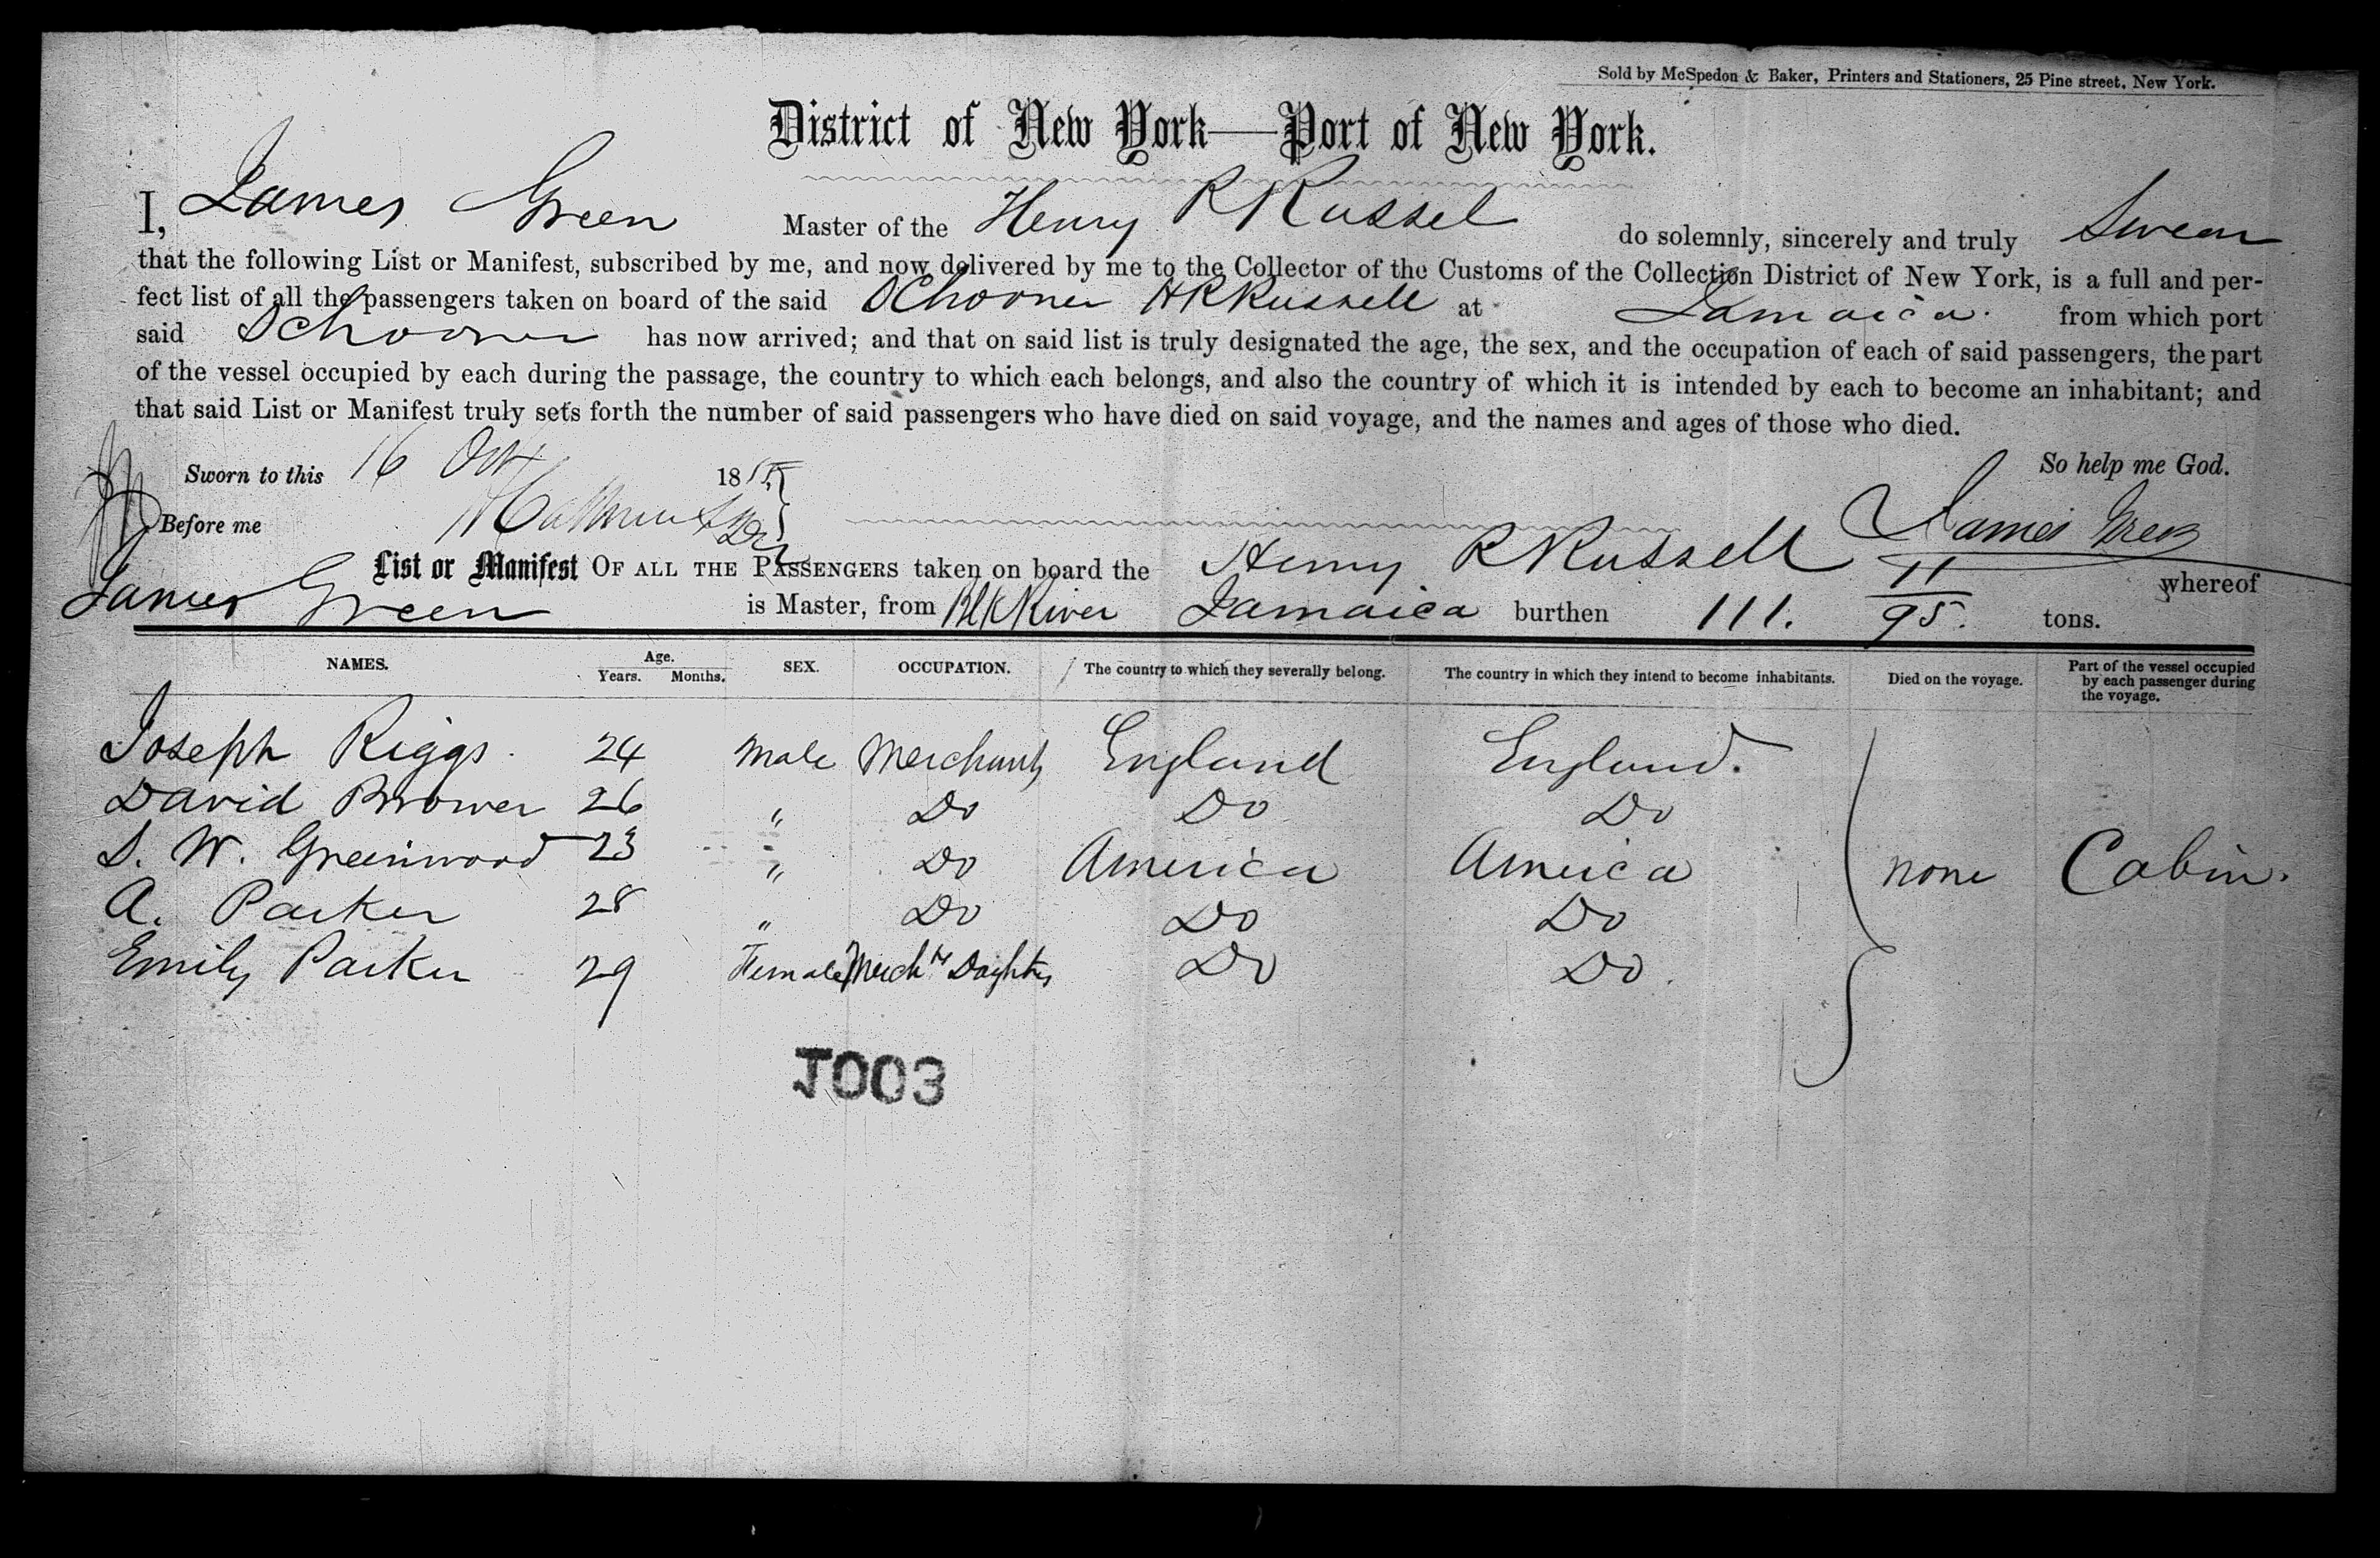 Sold by McSpedon & Baker, Printers and Stationers, 25 Pine street, New York.
District of New York—Port of New York.
I, James Green Master of the Henry R Russel do solemnly, sincerely and truly Swear
that the following List or Manifest, subscribed by me, and now delivered by me to the Collector of the Customs of the Collection District of New York, is a full and per-
fect list of all the passengers taken on board of the said Schooner HR Russell at Jamaica. from which port
said Schooner has now arrived; and that on said list is truly designated the age, the sex, and the occupation of each of said passengers, the part
of the vessel occupied by each during the passage, the country to which each belongs, and also the country of which it is intended by each to become an inhabitant; and
that said List or Manifest truly sets forth the number of said passengers who have died on said voyage, and the names and ages of those who died.
Sworn to this 16 Oct 1855 So help me God.
Before me James Green
List or Manifest OF ALL THE PASSENGERS taken on board the Henry R Russell whereof
James Green is Master, from Blk River Jamaica burthen 111. 11/95. tons.
NAMES. Age. Years. Months. SEX. OCCUPATION. The country to which they severally belong. The country in which they intend to become inhabitants. Died on the voyage. Part of the vessel occupied by each passenger during the voyage.
Joseph Riggs. 24 Male Merchant England England.
David Brower 26 " Do Do Do
S. W. Greenwood 23 " Do America America none Cabin.
A. Parker 28 " Do Do Do
Emily Parker 29 Female Mercht's Daughter Do Do.
J003